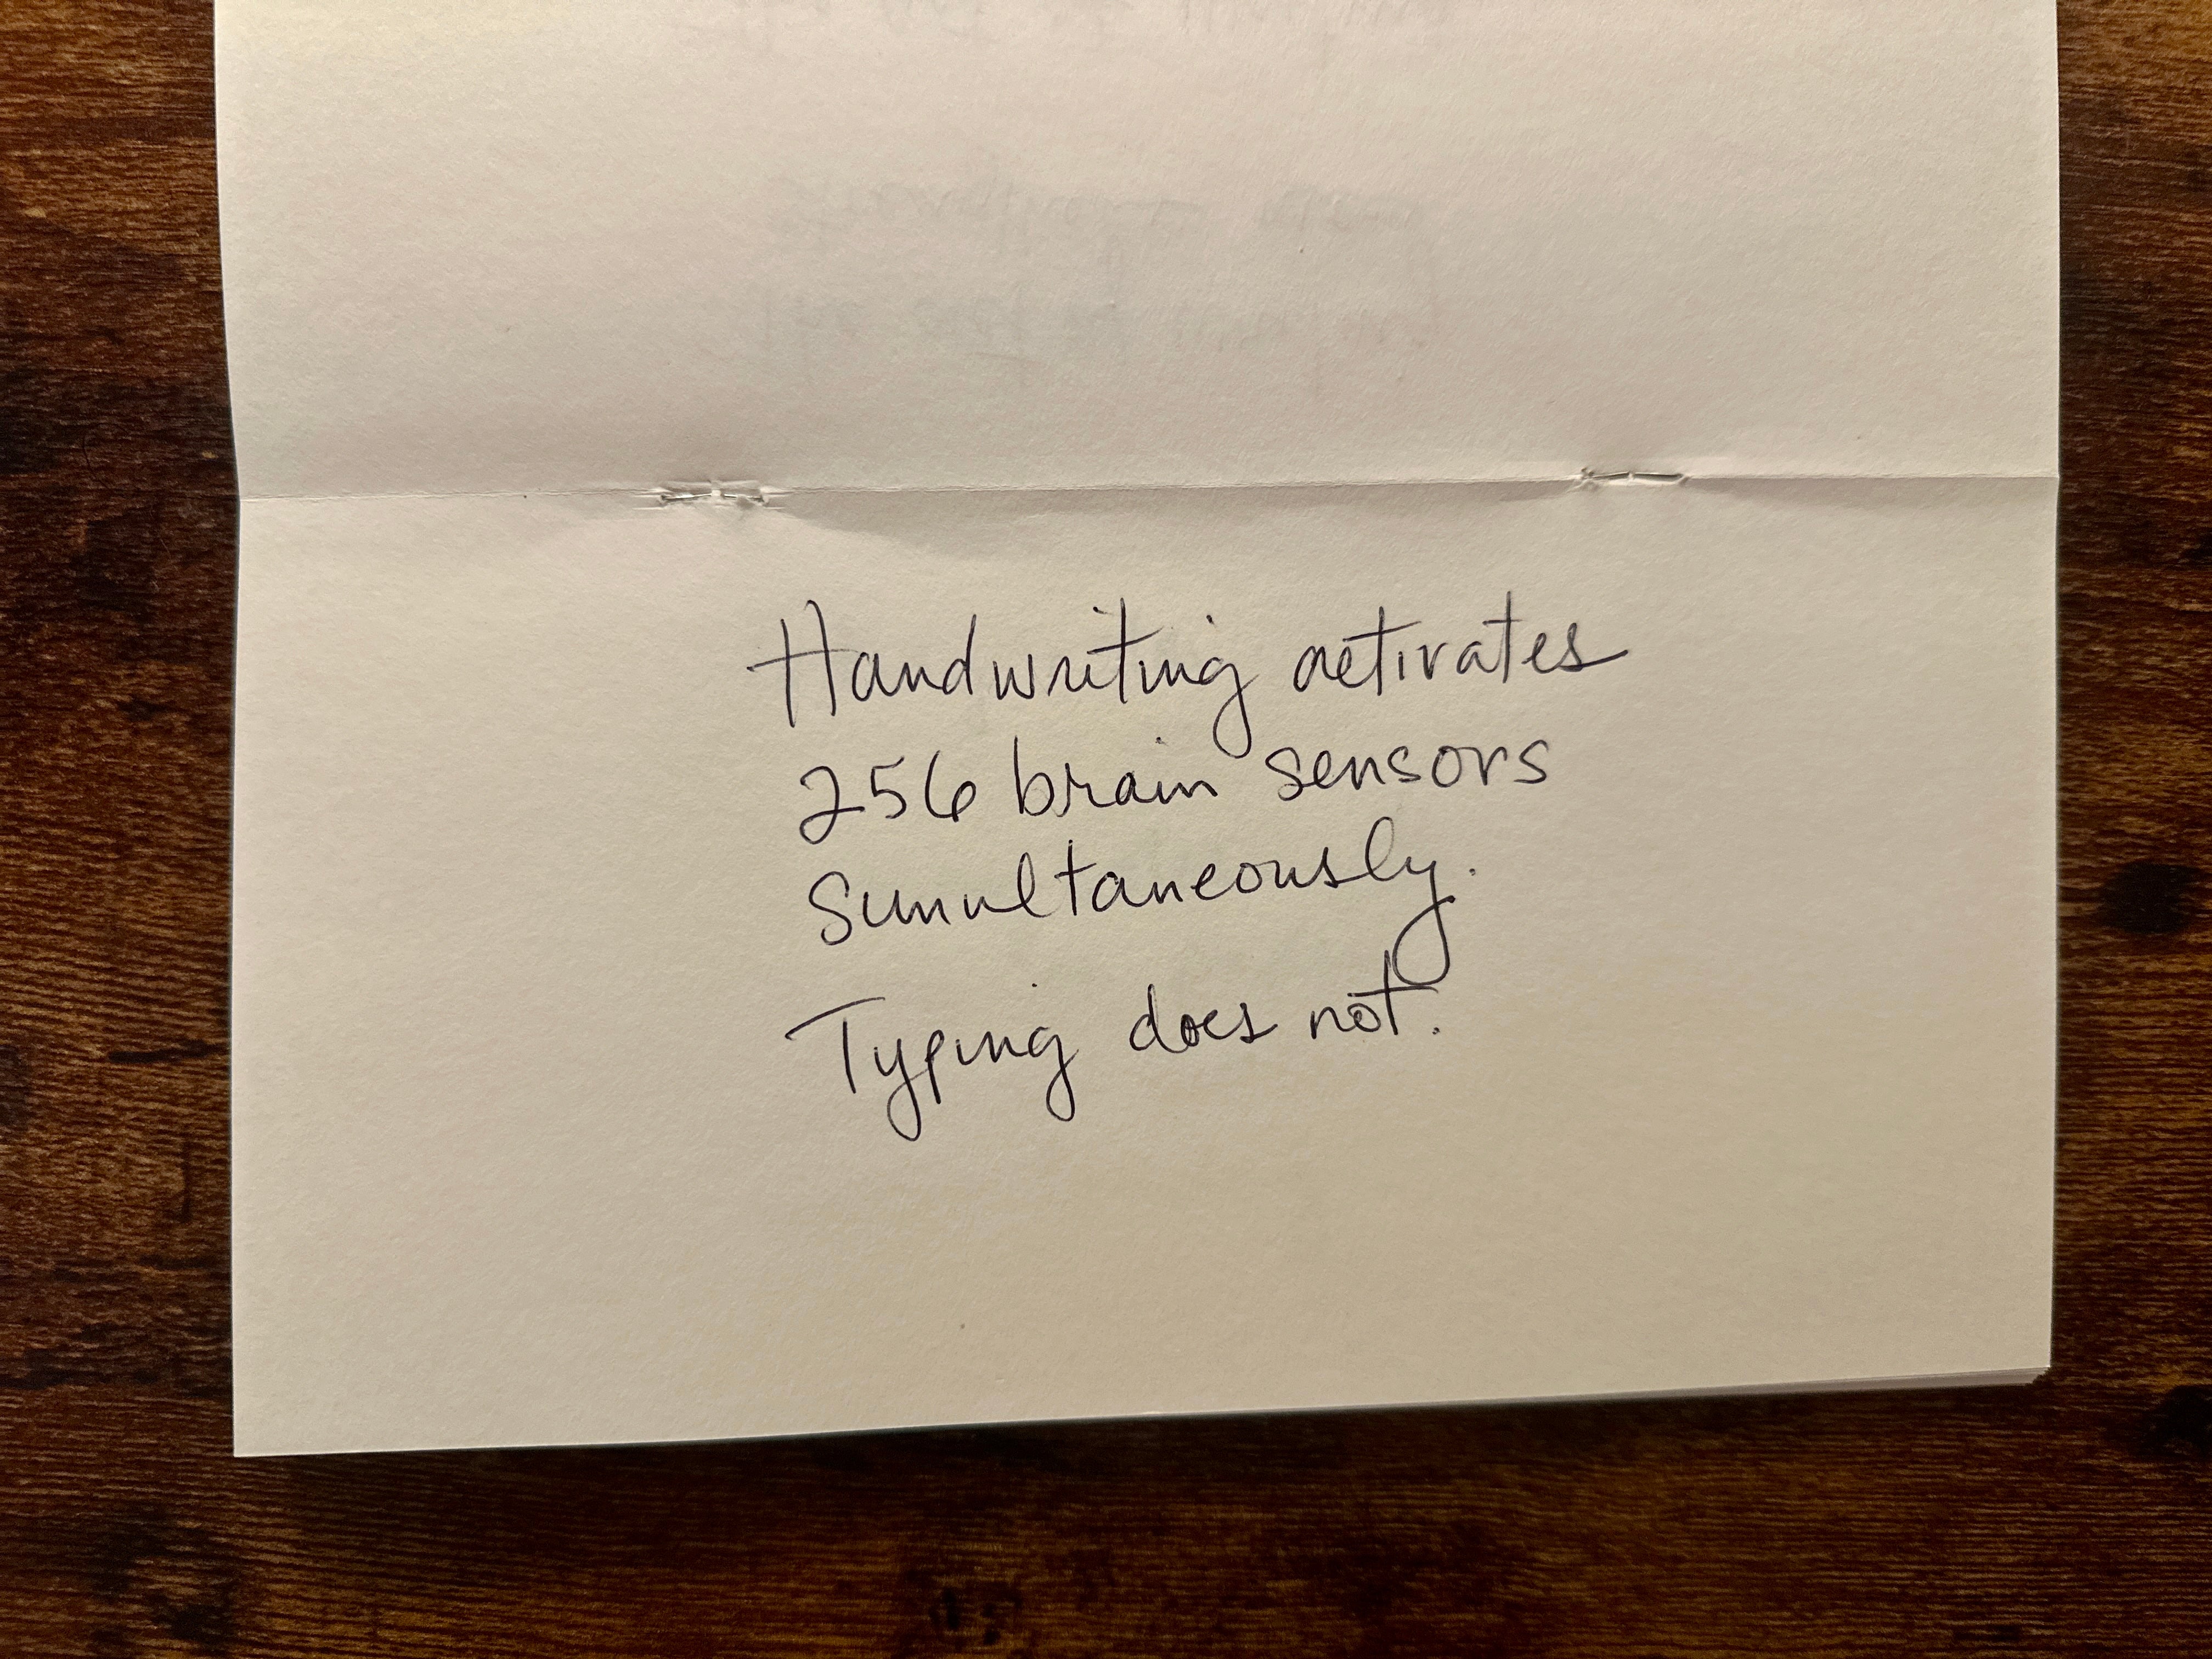 Handwriting activates
256 brain sensors
simultaneously.
Typing does not.